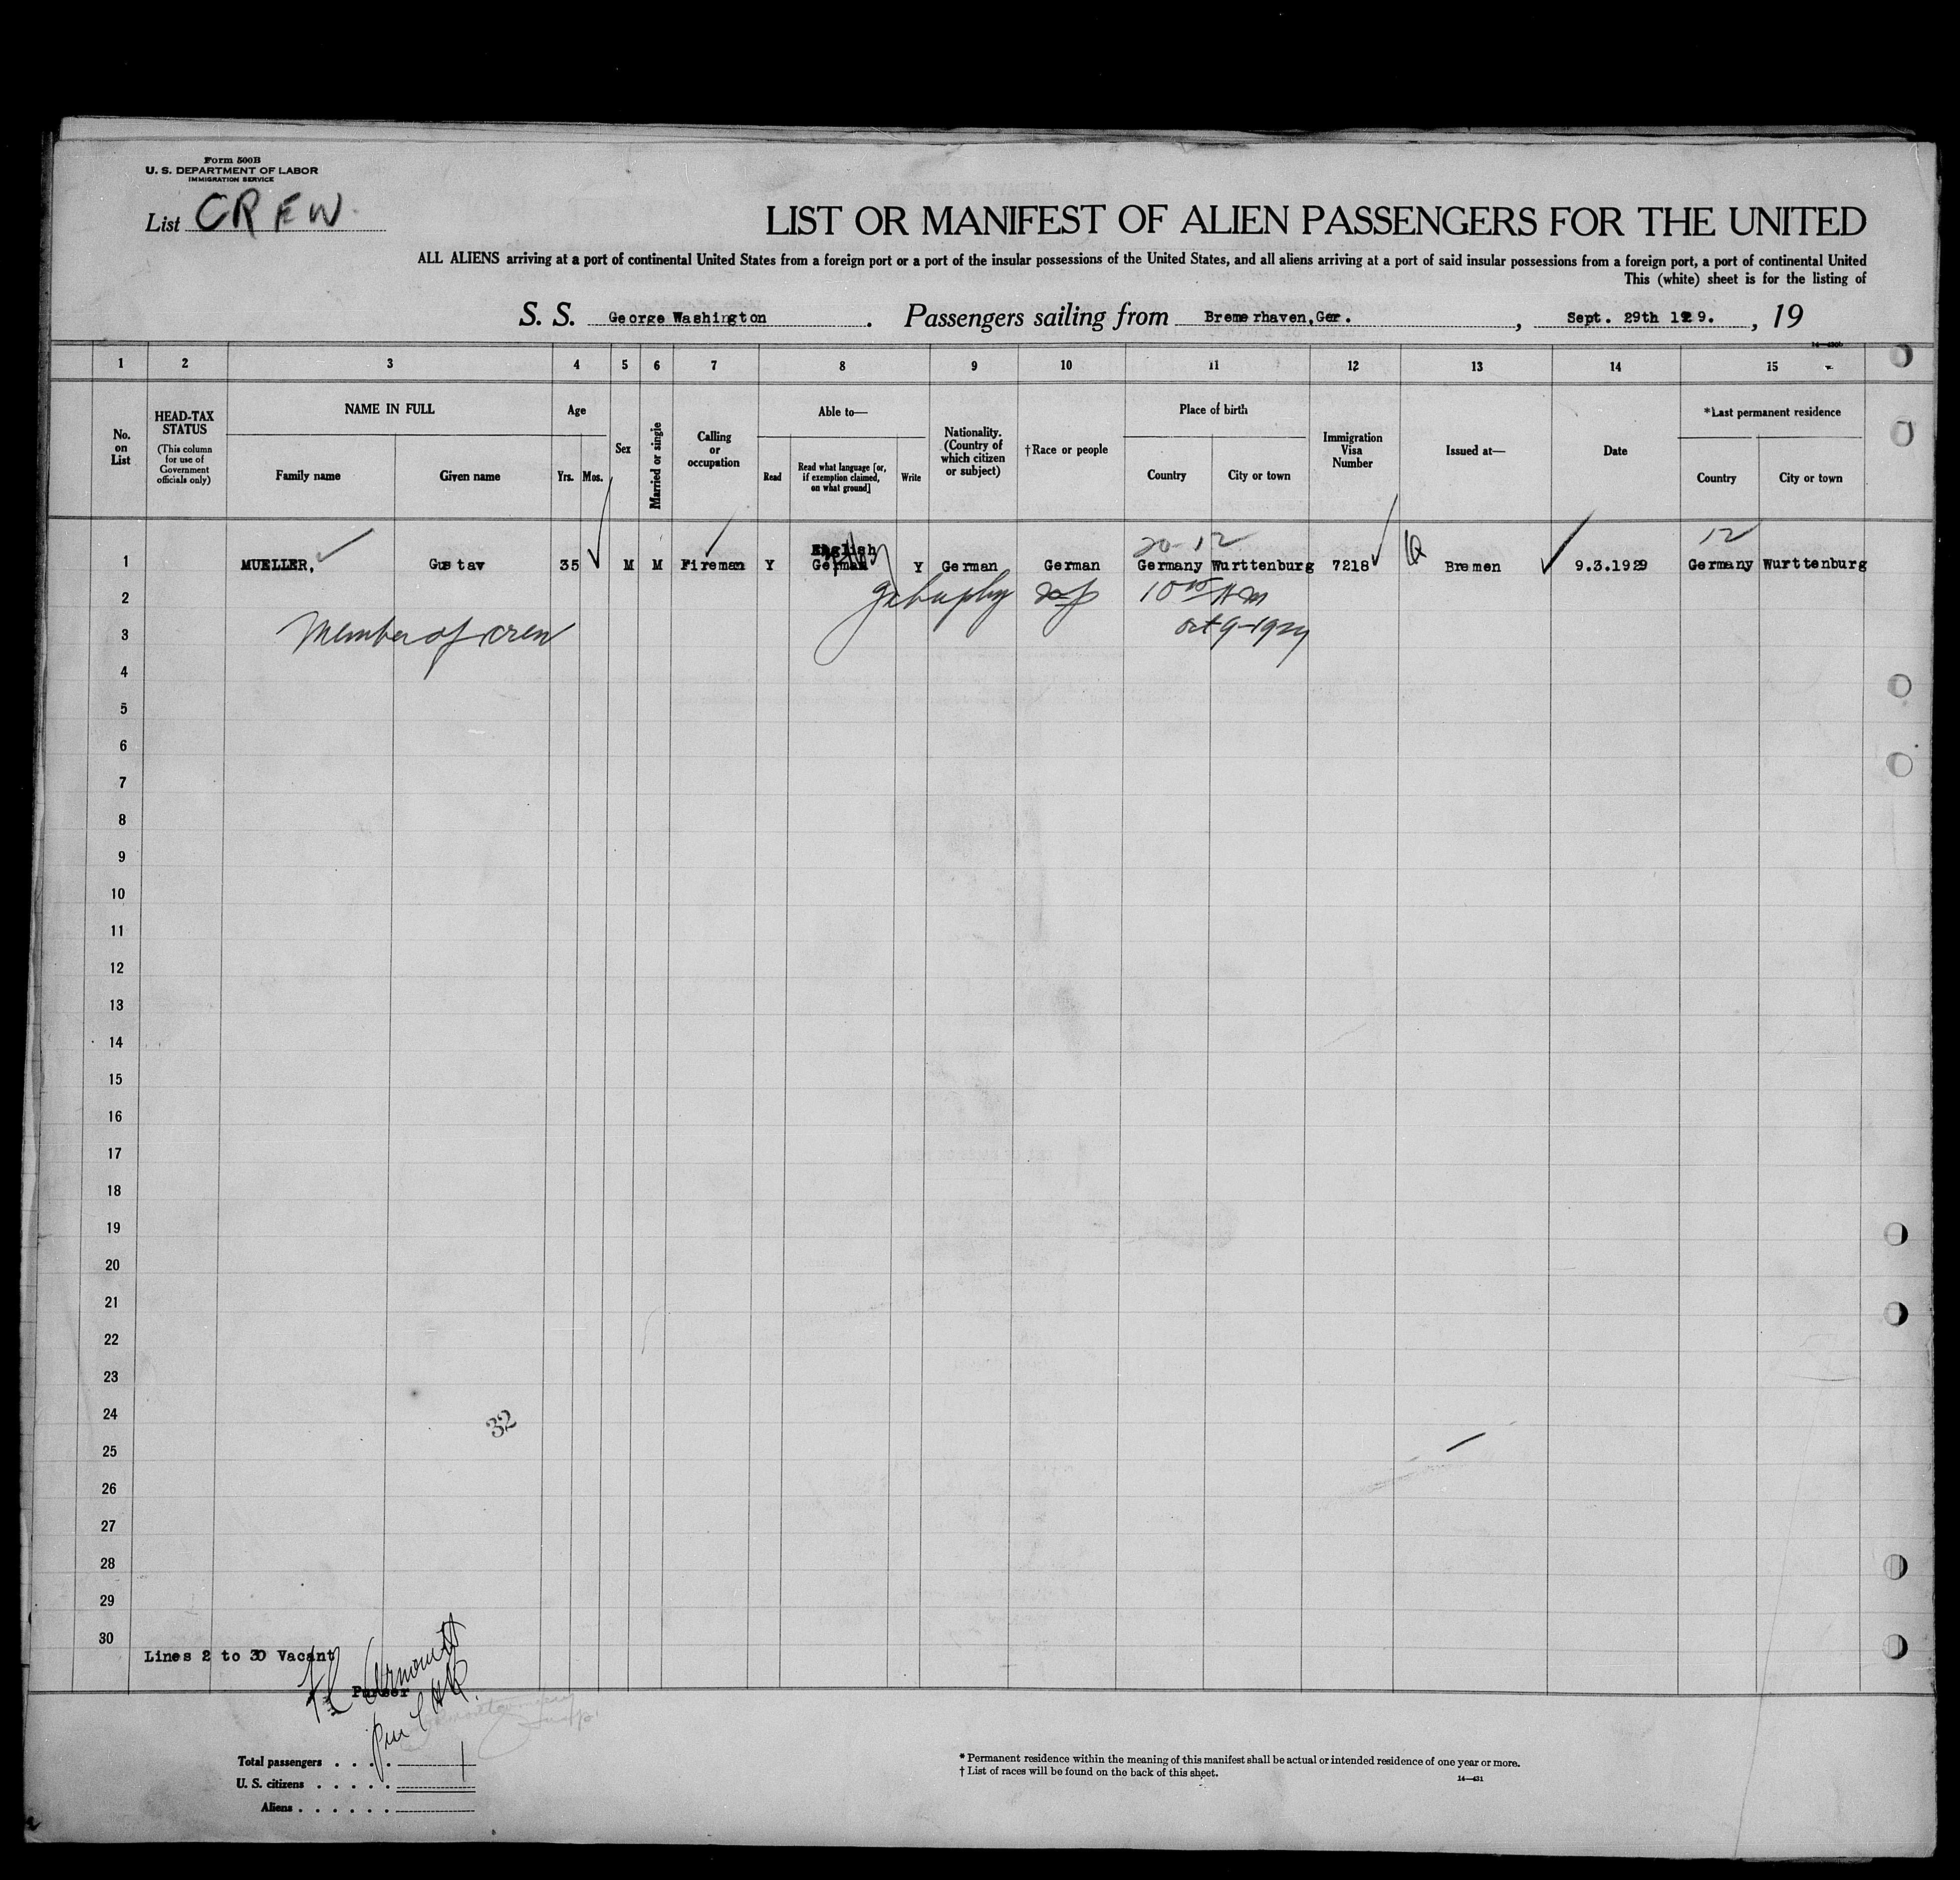 Form 500B
U. S. DEPARTMENT OF LABOR
IMMIGRATION SERVICE
List CREW
LIST OR MANIFEST OF ALIEN PASSENGERS FOR THE UNITED
ALL ALIENS arriving at a port of continental United States from a foreign port or a port of the insular possessions of the United States, and all aliens arriving at a port of said insular possessions from a foreign port, a port of continental United
This (white) sheet is for the listing of
S. S. George Washington . Passengers sailing from Bremerhaven,Ger. , Sept. 29th 1929. , 19
1 2 3 4 5 6 7 8 9 10 11 12 13 14 15
No. on List
HEAD-TAX STATUS
(This column for use of Government officials only)
NAME IN FULL
Family name Given name
Age
Yrs. Mos.
Sex
Married or single
Calling or occupation
Able to—
Read
Read what language [or, if exemption claimed, on what ground]
Write
Nationality. (Country of which citizen or subject)
†Race or people
Place of birth
Country City or town
Immigration Visa Number
Issued at—
Date
*Last permanent residence
Country City or town
20-12 12
English
1 MUELLER, Gustav 35 M M Fireman Y German Y German German Germany Wurttenburg 7218 Bremen 9.3.1929 Germany Wurttenburg
2 10 AM
3 Member of crew Oct 9-1929
4
5
6
7
8
9
10
11
12
13
14
15
16
17
18
19
20
21
22
23
24
32
25
26
27
28
29
30
Lines 2 to 30 Vacant
Purser
Total passengers . . . . 1
U. S. citizens . . . . .
Aliens . . . . . .
* Permanent residence within the meaning of this manifest shall be actual or intended residence of one year or more.
† List of races will be found on the back of this sheet.
14—431